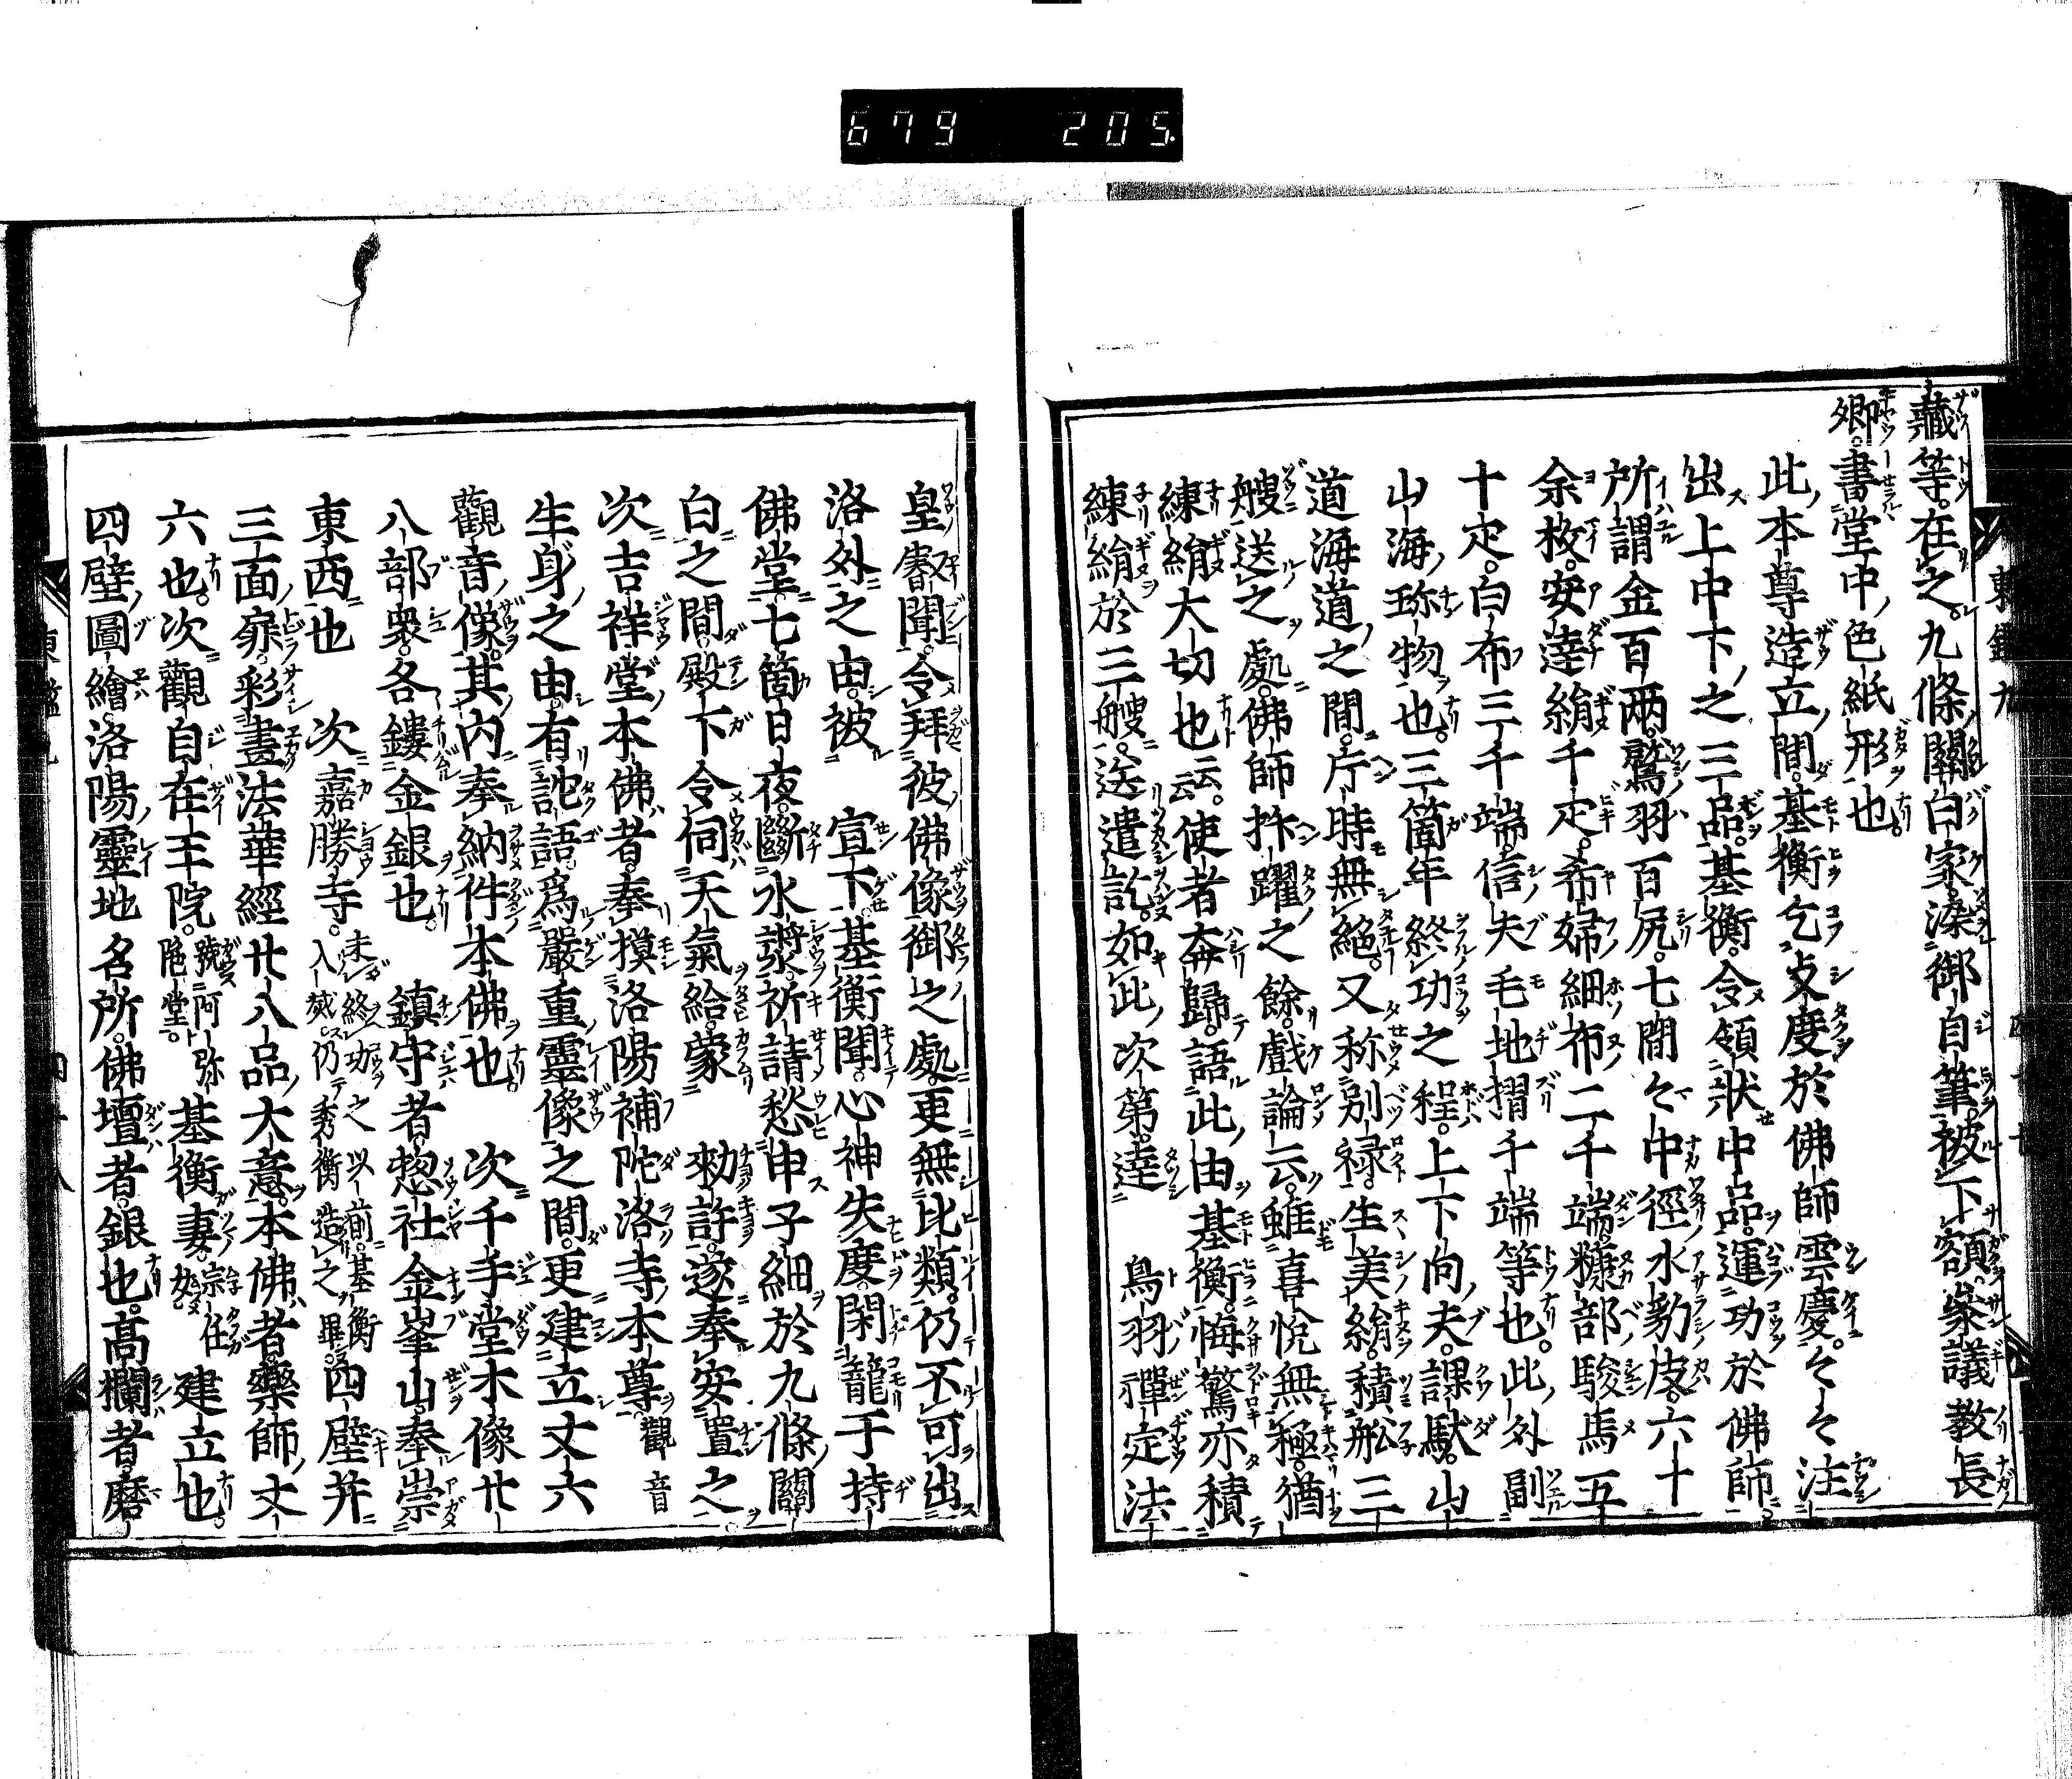 679 205
藏等在之九條關白家染御自筆被下額參議教長
卿書堂中色紙形也
此本尊造立間基衡乞支度於佛師雲慶云云注
出上中下之三品基衡令領狀中品運功於佛師
所謂金百兩鷲羽百尻七間々中徑水豹皮六十
余枚安達絹千疋希婦細布二千端糠部駿馬五
十疋白布三千端信夫毛地摺千端等也此外副
山海珎物也三箇年終功之程上下向夫課駄山
道海道之間片時無絕又称別禄生美絹積舩三
艘送之處佛師抃躍之餘戲論云雖喜悅無極猶
練絹大切也云云使者奔歸語此由基衡悔驚亦積
練絹於三艘送遣訖如此次第達 鳥羽禪定法
皇叡聞令拜彼佛像御之處更無比類仍不可出
洛外之由被 宣下基衡聞心神失度閑籠于持
佛堂七箇日夜斷水漿祈請愁申子細於九條關
白之間殿下令伺天氣給蒙 勅許遂奉安置之
次吉祥堂本佛者奉摸洛陽補陀洛寺本尊觀音
生身之由有託語爲嚴重靈像之間更建立丈六
觀音像其内奉納件本佛也 次千手堂木像廿
八部衆各鏤金銀也 鎮守者惣社金峯山奉崇
東西也 次嘉勝寺未終功之以前基衡入滅仍秀衡造之畢四壁并
三面扉彩畫法華經廿八品大意本佛者藥師丈
六也次觀自在王院號阿弥陁堂基衡妻宗任女建立也
四壁圖繪洛陽靈地名所佛壇者銀也高欄者磨
東鑑九